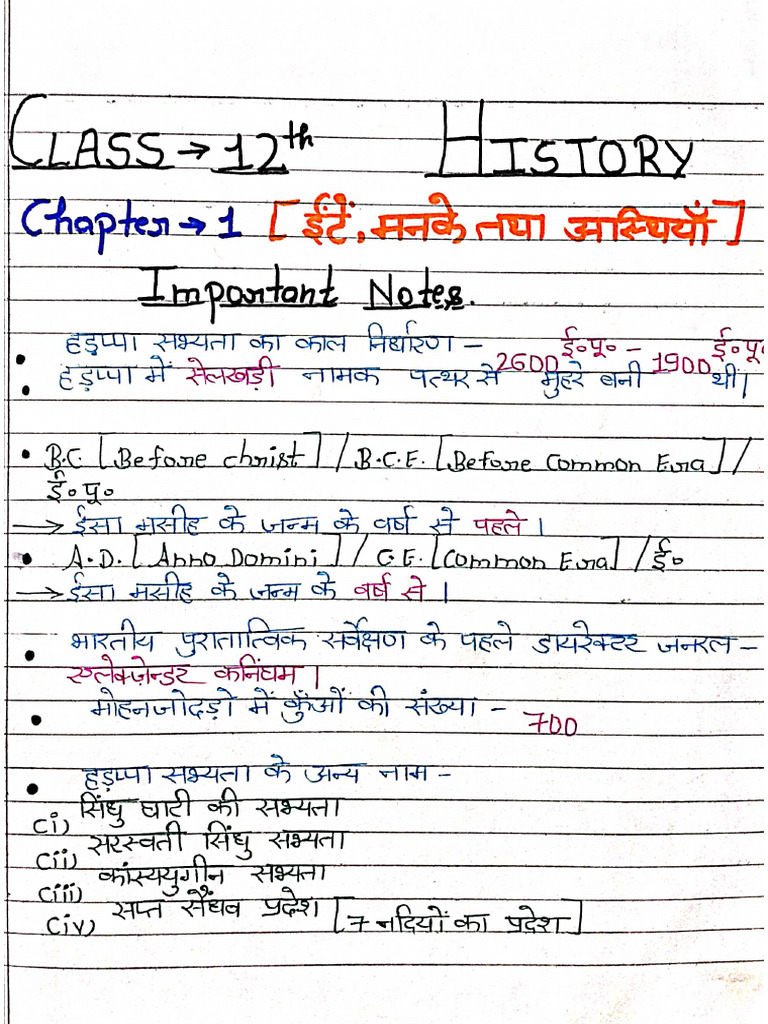 CLASS → 12th HISTORY
Chapter → 1 [ईंटें, मनके तथा अस्थियाँ]
Important Notes.
• हड़प्पा सभ्यता का काल निर्धारण – 2600 ई॰पू॰ – 1900 ई॰पू॰
• हड़प्पा में सेलखड़ी नामक पत्थर से मुहरे बनी थीं।
• B.C. [Before christ] / B.C.E. [Before Common Era] /
ई॰पू॰
→ ईसा मसीह के जन्म के वर्ष से पहले।
• A.D. [Anno Domini] / C.E. [Common Era] / ई॰
→ ईसा मसीह के जन्म के वर्ष से।
• भारतीय पुरातात्विक सर्वेक्षण के पहले डायरेक्टर जनरल –
एलेक्ज़ेन्डर कनिंघम।
• मोहनजोदड़ो में कुँओं की संख्या – 700
• हड़प्पा सभ्यता के अन्य नाम –
(i) सिंधु घाटी की सभ्यता
(ii) सरस्वती सिंधु सभ्यता
(iii) कांस्ययुगीन सभ्यता
(iv) सप्त सैंधव प्रदेश [7 नदियों का प्रदेश]